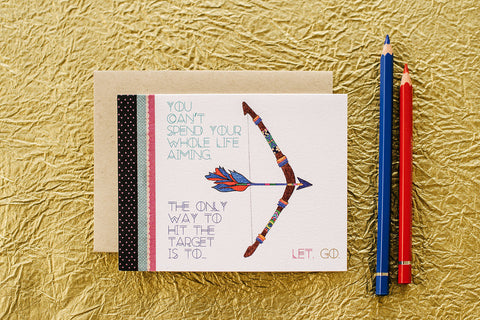 YOU
CAN'T
SPEND YOUR
WHOLE LIFE
AIMING.
THE ONLY
WAY TO
HIT THE
TARGET
IS TO...
LET. GO.